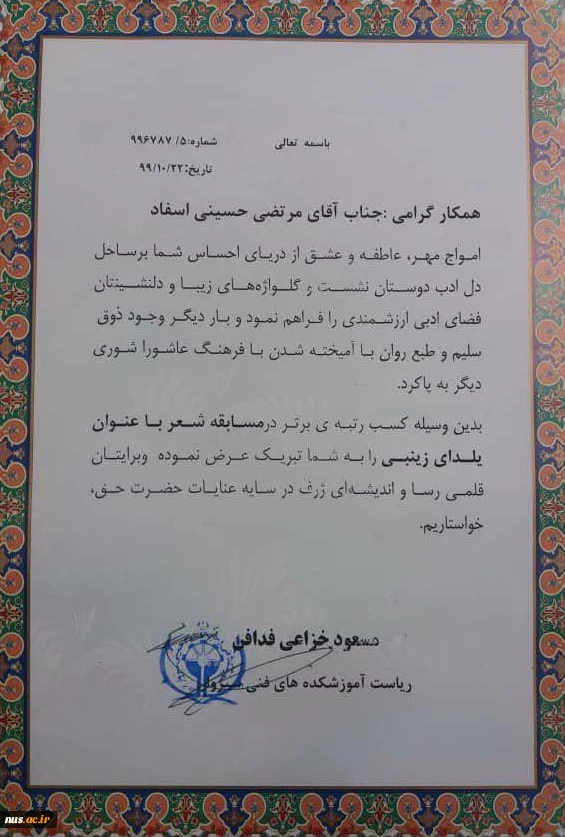 باسمه تعالی
شماره:۵/ ۹۹۶۷۸۷
تاریخ:۹۹/۱۰/۲۲
همکار گرامی :جناب آقای مرتضی حسینی اسفاد
امواج مهر، عاطفه و عشق از دریای احساس شما برساحل
دل ادب دوستان نشست و گلواژه‌های زیبا و دلنشینتان
فضای ادبی ارزشمندی را فراهم نمود و بار دیگر وجود ذوق
سلیم و طبع روان با آمیخته شدن با فرهنگ عاشورا شوری
دیگر به پاکرد.
بدین وسیله کسب رتبه ی برتر درمسابقه شعر با عنوان
یلدای زینبی را به شما تبریک عرض نموده وبرایتان
قلمی رسا و اندیشه‌ای ژرف در سایه عنایات حضرت حق،
خواستاریم.
مسعود خزاعی فدافن
ریاست آموزشکده های فنی
nus.ac.ir